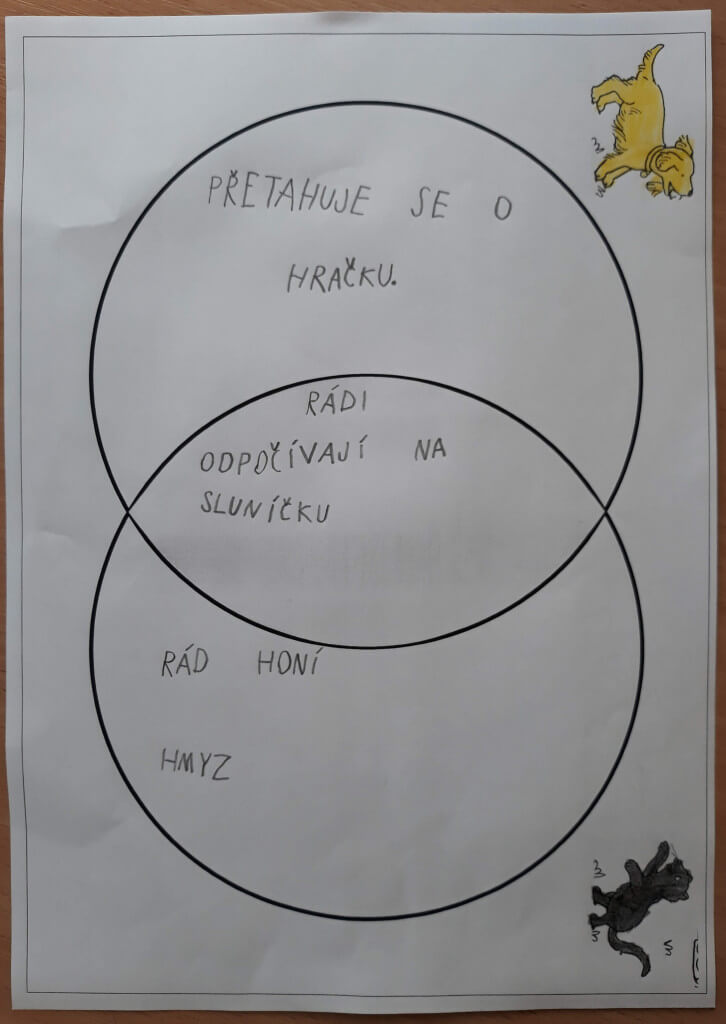 PŘETAHUJE SE O
HRAČKU.
RÁDI
ODPOČÍVAJÍ NA
SLUNÍČKU
RÁD HONÍ
HMYZ